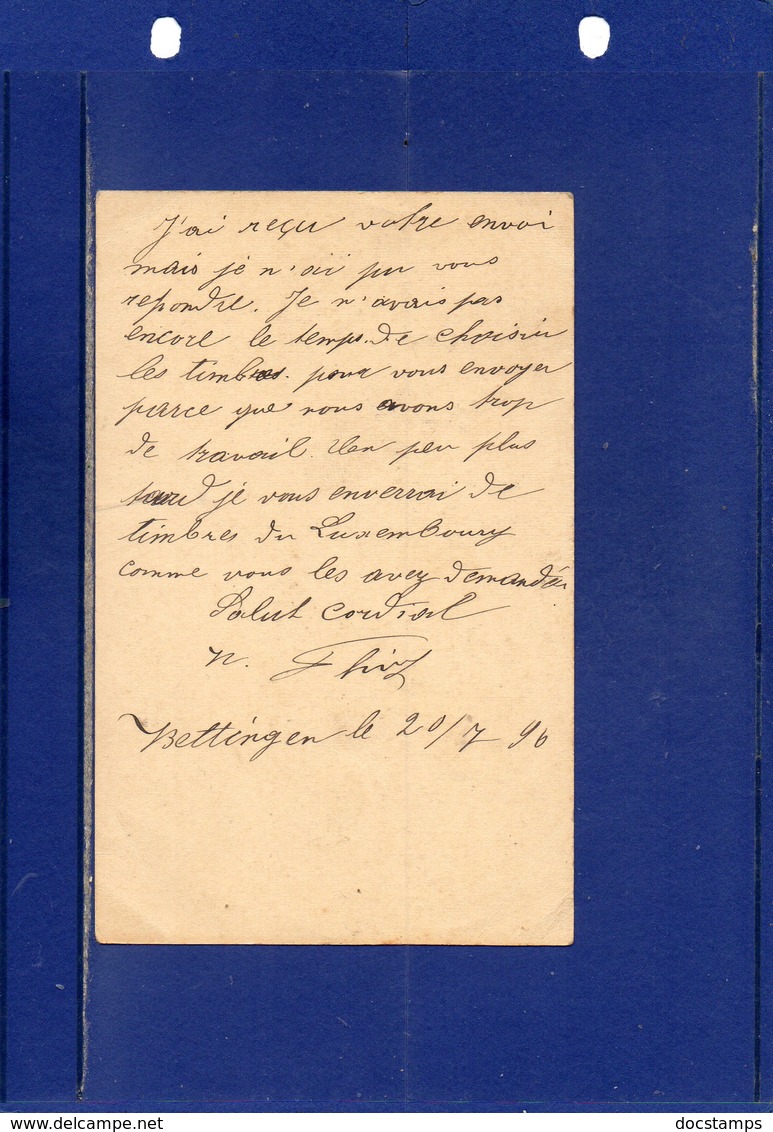 J'ai reçu votre envoi
mais je n'ai pu vous
repondre. Je n'avais pas
encore le temps de choisir
les timbres pour vous envoyer
parce que nous avons trop
de travail. Un peu plus
tard je vous enverrai de
timbres du Luxembourg
comme vous les avez demandés
Salut cordial
N.
Bettingen le 20/7 96
delcampe.net
docstamps